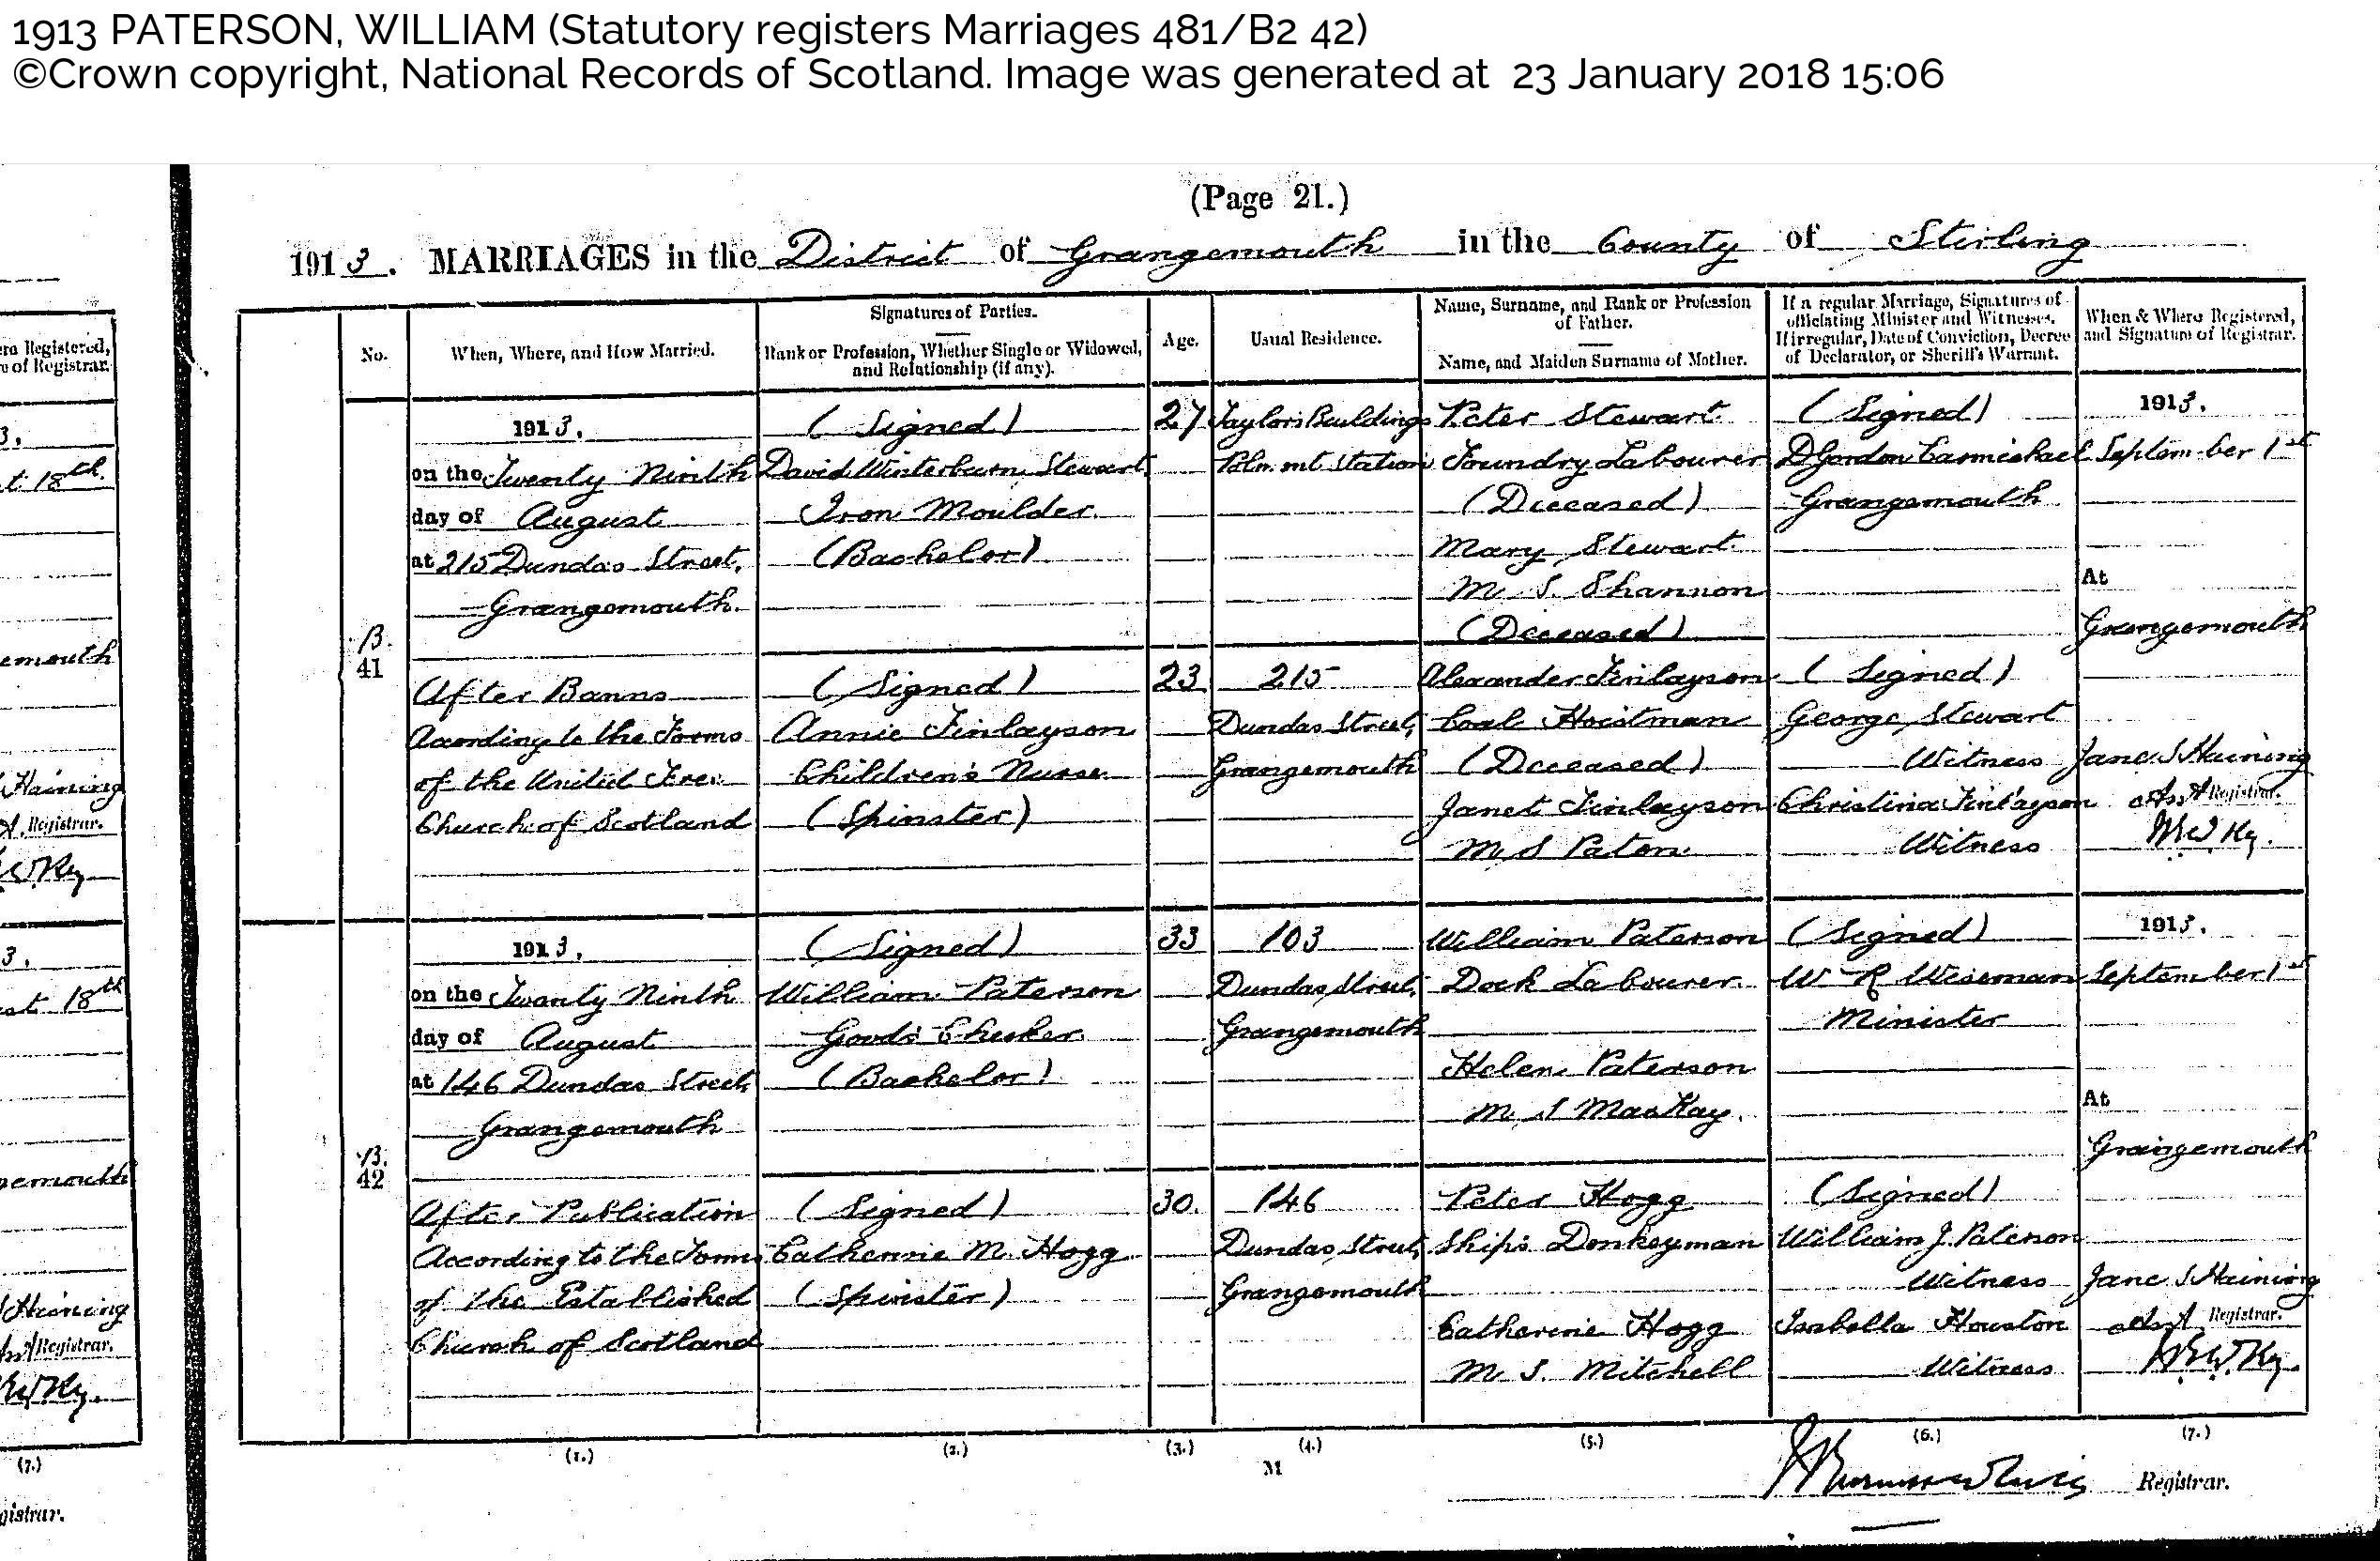 1913 PATERSON, WILLIAM (Statutory registers Marriages 481/B2 42)
©Crown copyright, National Records of Scotland. Image was generated at 23 January 2018 15:06
(Page 21.)
1913. MARRIAGES in the District of Grangemouth in the County of Stirling
No.
When, Where, and How Married.
Signatures of Parties.
Rank or Profession, Whether Single or Widowed,
and Relationship (if any).
Age.
Usual Residence.
Name, Surname, and Rank or Profession
of Father.
Name, and Maiden Surname of Mother.
If a regular Marriage, Signatures of
officiating Minister and Witnesses.
If irregular, Date of Conviction, Decree
of Declarator, or Sheriff's Warrant.
When & Where Registered,
and Signature of Registrar.
B.
41
1913.
on the Twenty Ninth
day of August
at 215 Dundas Street,
Grangemouth.
After Banns
According to the Forms
of the United Free
Church of Scotland
(Signed)
David Winterburn Stewart
Iron Moulder.
(Bachelor)
(Signed)
Annie Finlayson
Children's Nurse
(Spinster)
27
23
Taylors Buildings
Polmont Station
215
Dundas Street,
Grangemouth
Peter Stewart
Foundry Labourer
(Deceased)
Mary Stewart
M. S. Shannon
(Deceased)
Alexander Finlayson
Coal Hoistman
(Deceased)
Janet Finlayson
M S Paton
(Signed)
D Gordon Carmichael
Grangemouth
(Signed)
George Stewart
Witness
Christina Finlayson
Witness
1913.
September 1st
At
Grangemouth
Jane S Haining
Asst Registrar.
B.
42
1913.
on the Twenty Ninth
day of August
at 146 Dundas Street
Grangemouth
After Publication
According to the Forms
of the Established
Church of Scotland
(Signed)
William Paterson
Goods Checker
(Bachelor)
(Signed)
Catherine M. Hogg
(Spinster)
33
30.
103
Dundas Street,
Grangemouth
146
Dundas Street,
Grangemouth
William Paterson
Dock Labourer.
Helen Paterson
M. S MacKay.
Peter Hogg
Ship's Donkeyman
Catherine Hogg
M. S. Mitchell
(Signed)
W R Wiseman
Minister
(Signed)
William J. Paterson
Witness
Isabella Houston
Witness
1913.
September 1st
At
Grangemouth
Jane S Haining
Asst Registrar.
(1.) (2.) (3.) (4.) (5.) (6.) (7.)
M
Registrar.